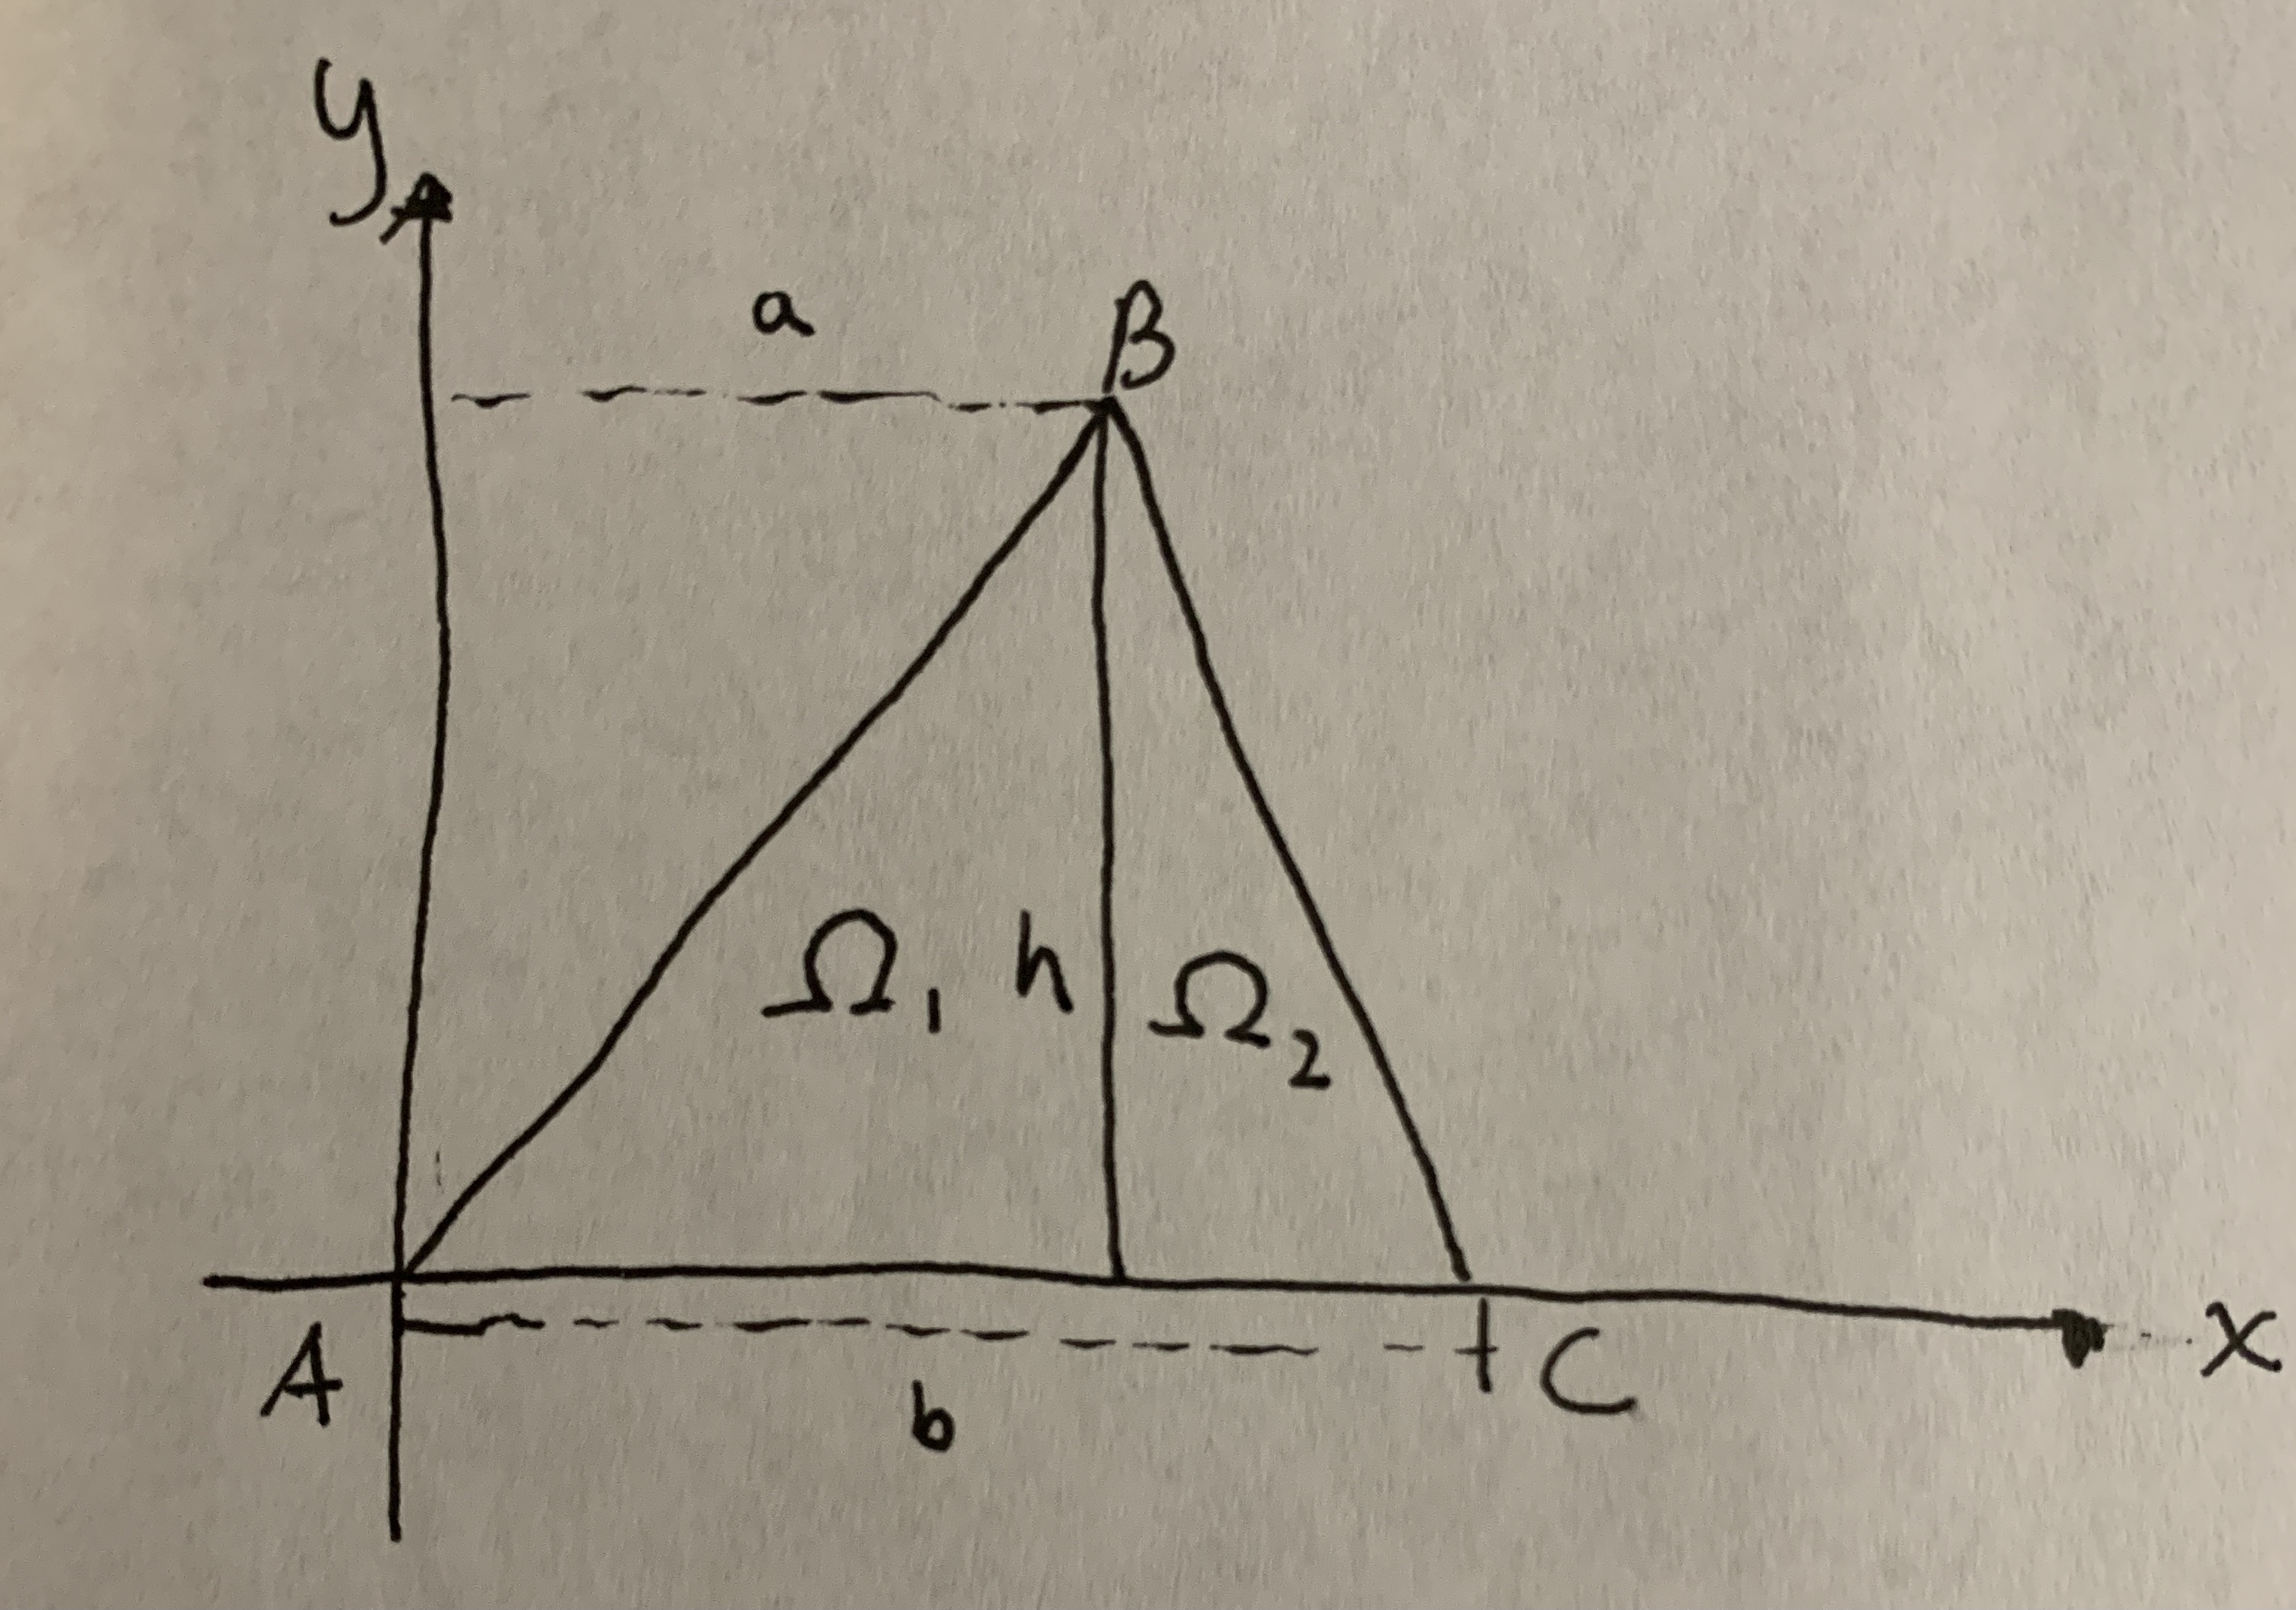 y
a
B
Ω₁ h Ω₂
A
C
x
b